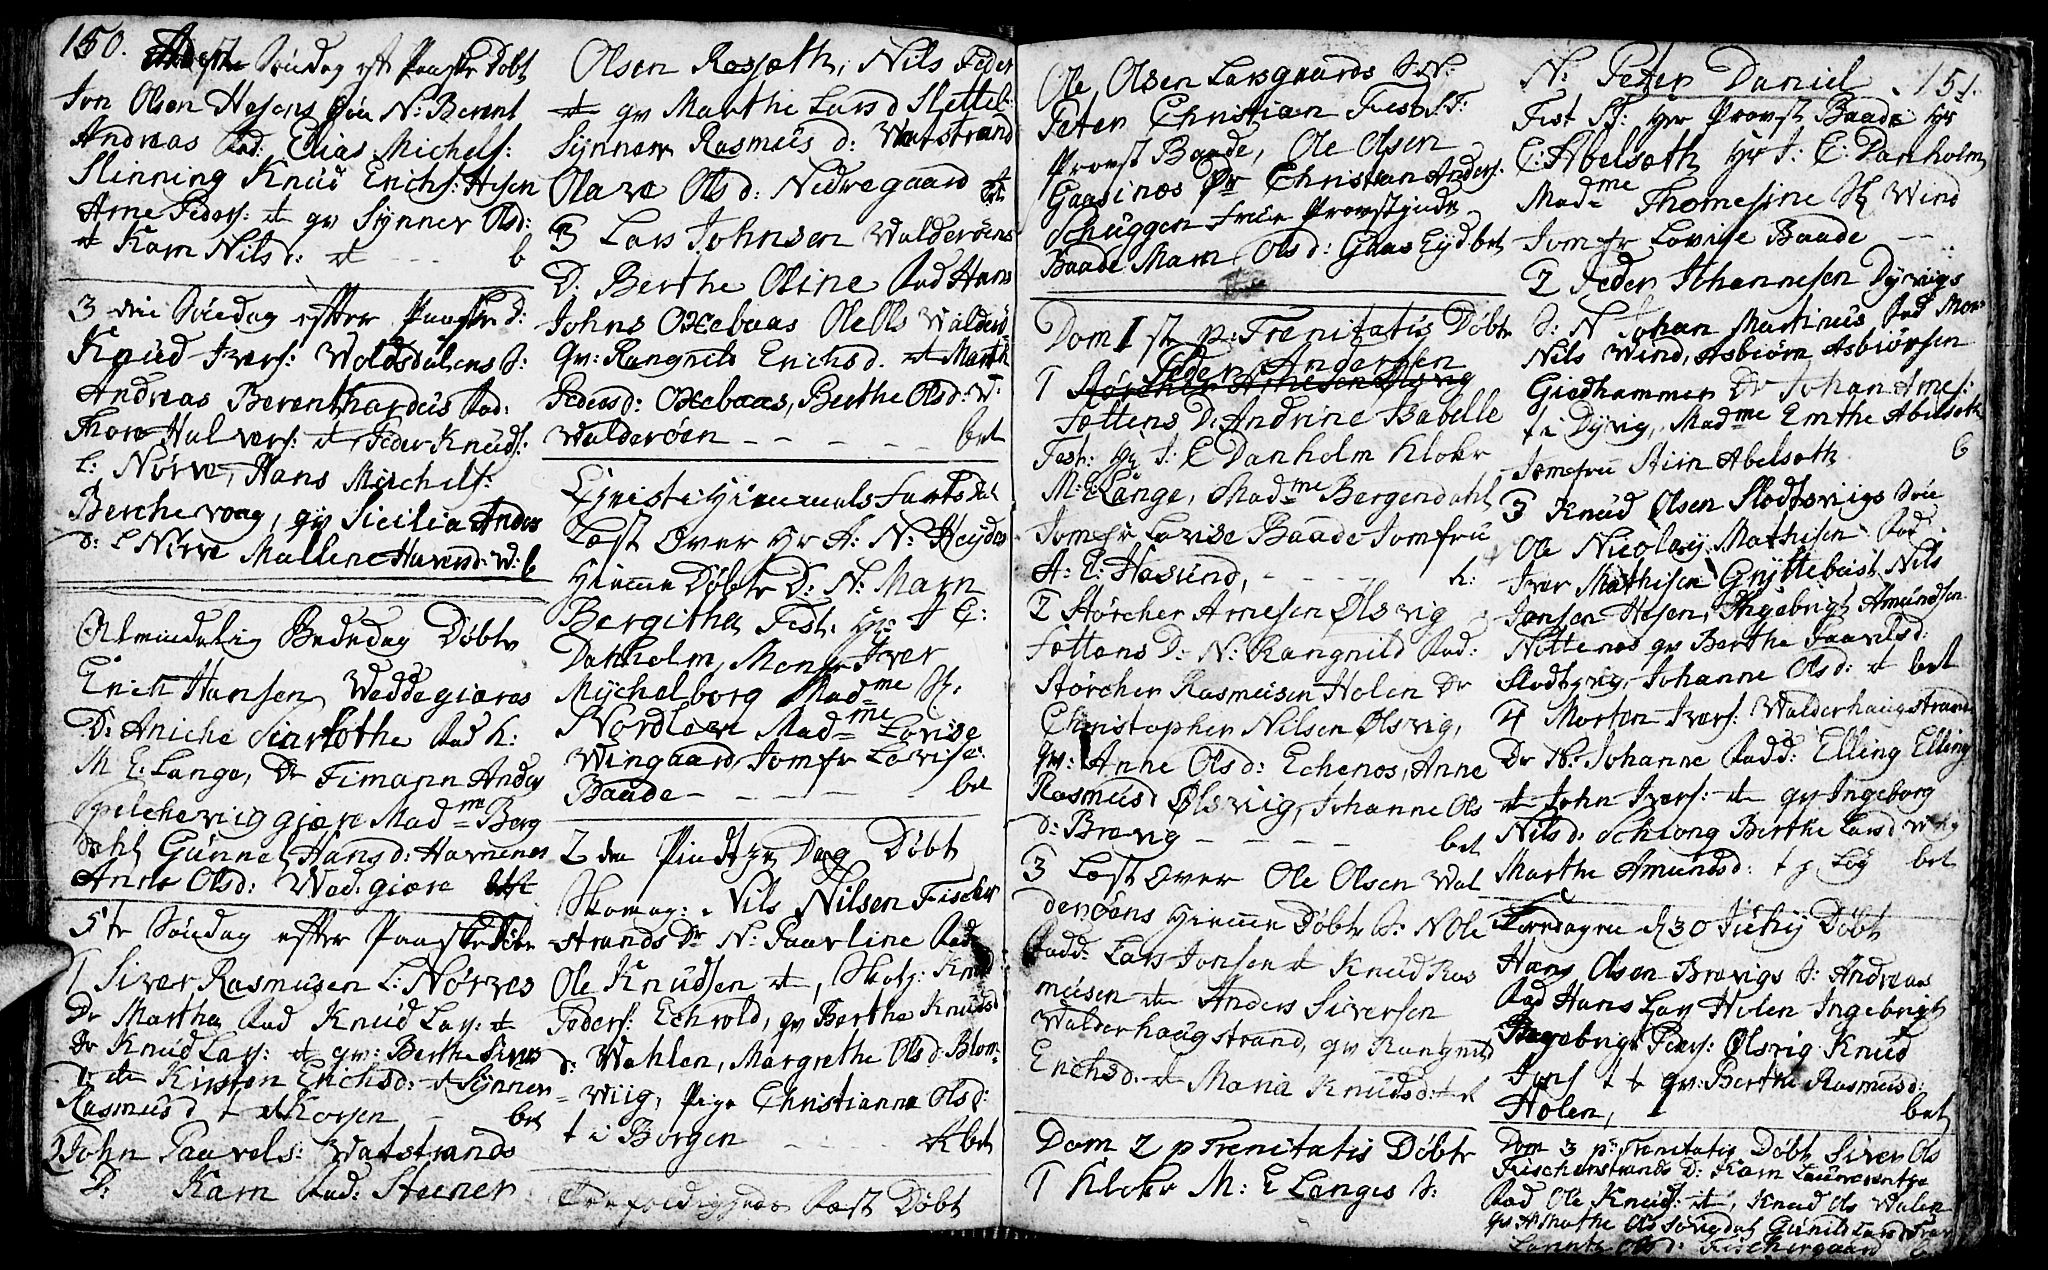 150.
Søndag eft Paaske Døbt
Jon Olsen Hesens Søn N: Berent
Andreas Fad: Elias Michels:
Slinning Knud Erichs: Hesen
Arne Peders: dt qv Synner Olsd:
dt Karn Nilsd: dt - - - b
3 die Søndag efter Paaske D:
Knud Ivers: Woldsdalens S:
Andreas Berenthardus Fad:
Thore Halvers: dt Peder Knuds:
L: Nørve, Hans Michels:
Berchevaag, qv Sicilia Anders
d: L Nørve Mallene Havensd: W: b
Almindelig Bededag Døbte
Erich Hansen Weddegiæres
D: Aniche Fad K:
M E: Lange, Dr Timann Anders
Spilchevig giære Madme Berg
dahl Gunnel Hansd: Hamenes
Anne Olsd: Wed:giære bet
5te Søndag efter Paaske Døbt
1 Siver Rasmusen L: Nørves
Dr Martha Fad Knud Lars: dt
Dr Knud Lars: dt qv: Berthe Sivers
d dt Kirsten Erichsd: dt Synner
Rasmusd t dt Korsen - bet
2 John Paavels: Watstrands
D: Karn Fad: Steener
Olsen Rosseth, Nils Peder
dt qv Marthe Larsd Sletteb:
Synner Rasmus d: Watstrand
Olave Olsd: Nedregaard dt bet
3 Lars Johnsen Walderøens
D. Berthe Oline Fad Hans
Johns Oxebaas Ole Ols Walderø
qv: Rangnele Erichsd. dt Marth
Pedersd: Oxebaas, Berthe Olsd: W:
Walderøen - - - - bet
Christi Himmels Farts Dal
Læst Over Hr A: N: Heydes
Hieme Døbte D: N: Marn
Bergitha Test: Hr: J E:
Danholm, Monsr Iver
Mychelborg Madme S:
Nordløw Madme Lovise
Wingaard Jomfr Lovise:
Baade - - - - - bet
2 den Pindtze Dag Døbt
Skomag: Nils Nilsen Fischer
strands Dr N: Paavline Fad
Ole Knudsen dt, Skotz: Knud
Peders: Echrold, qv Berthe Knuds
d: Wahlen, Margrethe Olsd: Blom=
= wiig, Pige Christianna Olsd:
t i Borgen - - - bet
Trefoldigheds Fæst Døbt
Ole Olsen Larsgaards S N:
Peter Christian Test: S T:
Provst Baade, Ole Olsen
Gaasines Dr Christian Anders:
Schuggen Frue Provstinde
Baade Marn Olsd: Gaas Eyd bet
Dom 1 st p: Trenitatis Døbte
Peder Andersen
1 Størcher Arnesen Ølsvig
Tottens D: Andrine Isabelle
Test: Hr J: E Danholm Klokr
M: E Lange, Madme Bergendahl
Jomfr Lovise Baade Jomfru
A: E: Hasund, - - - - k:
2 Størcher Arnesen Ølsvig
Tottens D: N: Rangnild Fad:
Størcher Rasmusen Holen Dr
Christopher Nilsen Ølsvig,
qv: Anne Olsd: Echenes, Anne
Rasmusd Ølsviig, Johanne Ols
d: Brevig - - - - bet
3 Læst over Ole Olsen Wal
derøens Hieme Døbte S: N Ole
Fadd: Lars Jonsen dt Knud Ras
musen dt Anders Siversen
Walderhaugstrand, qv Rangnild
Erichsd: dt Maria Knudsd: dt
Dom 2 p Trenitatis Døbte
1 Klokr M: E Langes S:
N: Peter Daniel 151.
Test S T: Hr Provst Baade Hr
C: Abelseth Hr J: E: Danholm
Madme Thomesine Wind
Jomfr Lovise Baade - -
2 Peder Johannesen Dyrvigs
S: N Johan Martinus Fad Mon:
Nils Wind, Asbiørn Asbiørsen
Giedhammer Dr Johan Arnes:
t i Dyrvig, Madme Emthe Abelseth
Jomfru Stirn Abelseth b
3 Knud Olsen Slodtsvigs Søn
Ole Nicolay Mathisen Fad:
Iver Mathisen Gryttebust, Nils
Jansen Hesen, Ingebrigt Amundsen
Nøttenes qv Berthe Paavelsd:
Slodtsvig, Johanne Olsd: dt bet
4 Morten Ivers: Walderhaugstrands
Dr N: Johanne Fadd: Elling Elling
dt John Ivers: dt qv Ingeborg
Nilsd: Schiong Berthe Larsd
Marthe Amundsd: bet
Torsdagen d 30 Juny Døbt
Hans Olsen Brevigs S: Andreas
Fad Hans Lars Holen Ingebrigt
Ingebrigt Peders: Ølsvig Knud
Jons t t qv: Berthe Rasmusd:
Holen, bet
Dom 3 p: Trenitatis Døbt Siver Ols
Fischerstrands D: Karn Laurentze
Fad Ole Knuds: dt, Knud Ols Walen
qv Mathe Olsd Gunild Larsd
Olsd: Fischergaard b